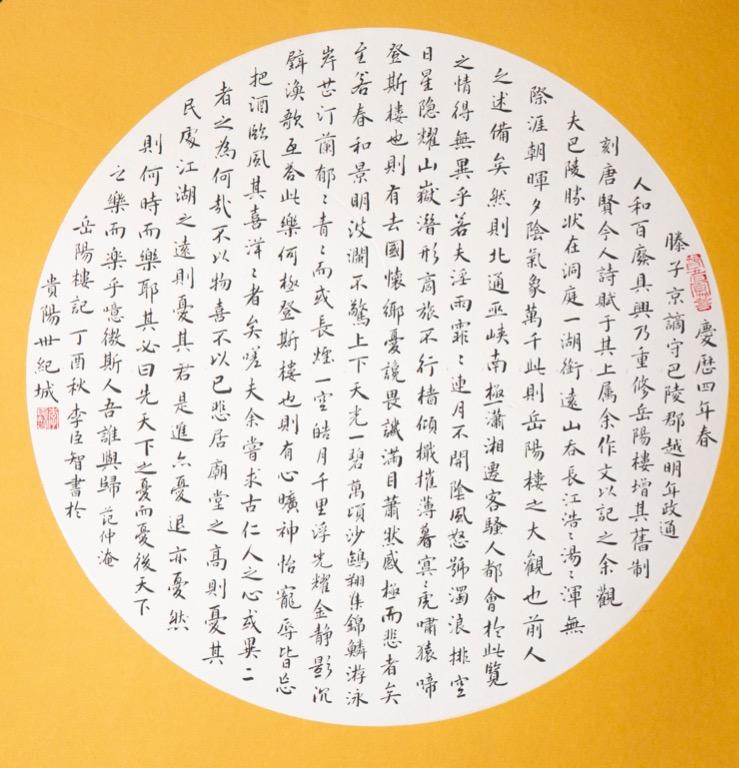 慶曆四年春
滕子京謫守巴陵郡越明年政通
人和百廢具興乃重修岳陽樓增其舊制
刻唐賢今人詩賦于其上属余作文以記之余觀
夫巴陵勝狀在洞庭一湖銜遠山吞長江浩〻湯〻渾無
際涯朝暉夕陰氣象萬千此則岳陽樓之大觀也前人
之述備矣然則北通巫峡南極瀟湘遷客騷人都會於此覽
之情得無異乎若夫淫雨霏〻連月不開陰風怒號濁浪排空
日星隐耀山嶽潛形商旅不行檣傾檝摧薄暮冥〻虎嘯猿啼
登斯樓也則有去國懷鄉憂讒畏譏滿目蕭然感極而悲者矣
至若春和景明波瀾不驚上下天光一碧萬頃沙鷗翔集錦鱗游泳
岸芷汀蘭郁〻青〻而或長煙一空皓月千里浮光耀金静影沉
璧漁歌互答此樂何極登斯樓也則有心曠神怡寵辱皆忘
把酒臨風其喜洋〻者矣嗟夫余嘗求古仁人之心或異二
者之為何哉不以物喜不以已悲居廟堂之高則憂其
民處江湖之遠則憂其君是進亦憂退亦憂然
則何時而樂耶其必曰先天下之憂而憂後天下
之樂而楽乎噫微斯人吾誰與歸 范仲淹
岳陽樓記 丁酉秋 李臣智書於
貴陽世紀城